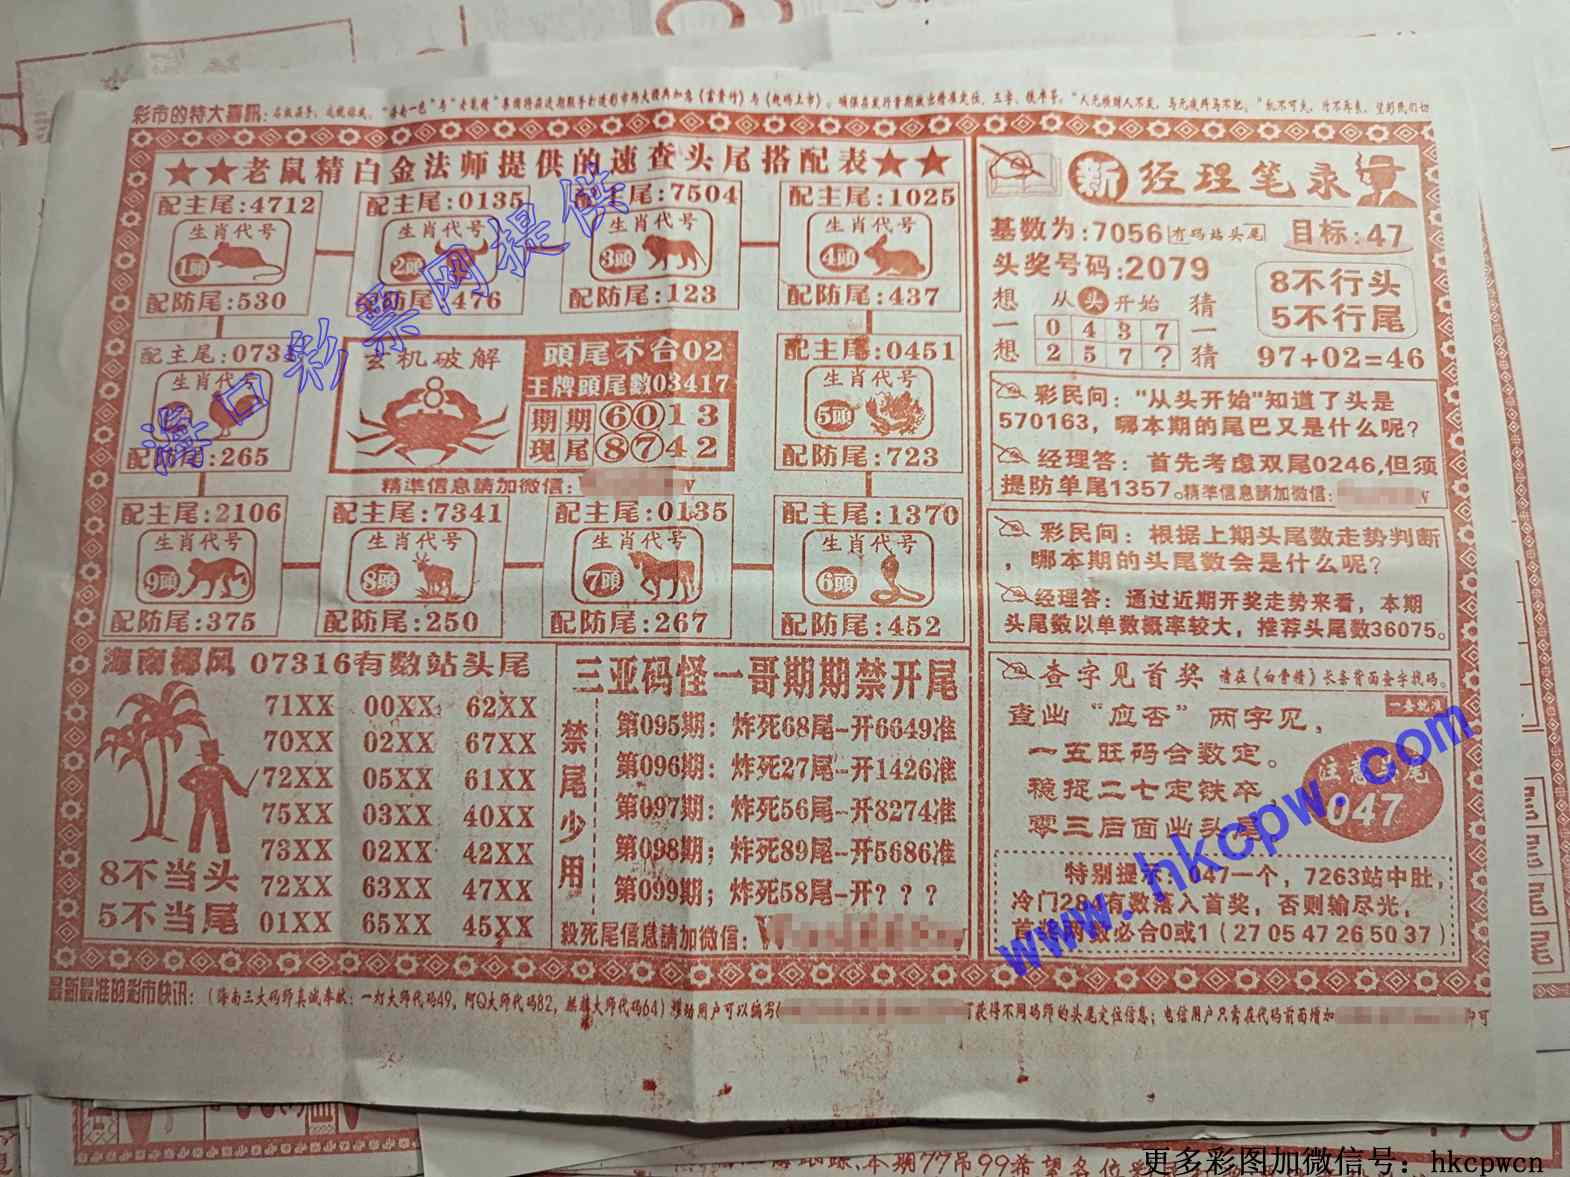 彩市的特大喜讯:
★★老鼠精白金法师提供的速查头尾搭配表★★
配主尾:4712
生肖代号
1頭
配防尾:530
配主尾:0135
生肖代号
2頭
配防尾:476
配主尾:7504
生肖代号
3頭
配防尾:123
配主尾:1025
生肖代号
4頭
配防尾:437
配主尾:073
生肖代号
配防尾:265
玄机破解
8
頭尾不合02
王牌頭尾數03417
期期⑥⓪13
现尾⑧⑦42
精準信息請加微信:
配主尾:0451
生肖代号
5頭
配防尾:723
配主尾:2106
生肖代号
9頭
配防尾:375
配主尾:7341
生肖代号
8頭
配防尾:250
配主尾:0135
生肖代号
7頭
配防尾:267
配主尾:1370
生肖代号
6頭
配防尾:452
海南椰风 07316有数站头尾
71XX 00XX 62XX
70XX 02XX 67XX
72XX 05XX 61XX
75XX 03XX 40XX
73XX 02XX 42XX
72XX 63XX 47XX
01XX 65XX 45XX
8不当头
5不当尾
三亚码怪一哥期期禁开尾
禁尾少用
第095期: 炸死68尾--开6649准
第096期: 炸死27尾--开1426准
第097期: 炸死56尾--开8274准
第098期; 炸死89尾--开5686准
第099期; 炸死58尾--开? ? ?
殺死尾信息請加微信:
新 经理笔录
基数为:7056 有码站头尾
目标:47
头奖号码:2079
8不行头
5不行尾
想一想
从头开始
0 4 3 7
2 5 7 ?
猜一猜
97+02=46
彩民问: "从头开始"知道了头是
570163, 哪本期的尾巴又是什么呢?
经理答: 首先考虑双尾0246,但须
提防单尾1357。精準信息請加微信:
彩民问: 根据上期头尾数走势判断
, 哪本期的头尾数会是什么呢?
经理答: 通过近期开奖走势来看, 本期
头尾数以单数概率较大, 推荐头尾数36075。
查字见首奖 请在《白骨精》长条背面查字找码。
一查就准
查出 "应否" 两字见,
一五旺码合数定。
稳捉二七定铁卒
零三后面出头尾
注意 尾
047
特别提示: 047一个, 7263站中肚,
冷门284有数落入首奖, 否则输尽光,
首奖两数必合0或1 (27 05 47 26 50 37)
最新最准的彩市快讯: (海南三大码师真诚奉献: 一灯大师代码49, 阿Q大师代码82, 麒麟大师代码64) 移动用户可以编写(
可获得不同码师的头尾定位信息; 电信用户只需在代码前面增加
即可
海口彩票网提供
www.hkcpw.com
本期77吊99希望各位彩
更多彩图加微信号: hkcpwcn